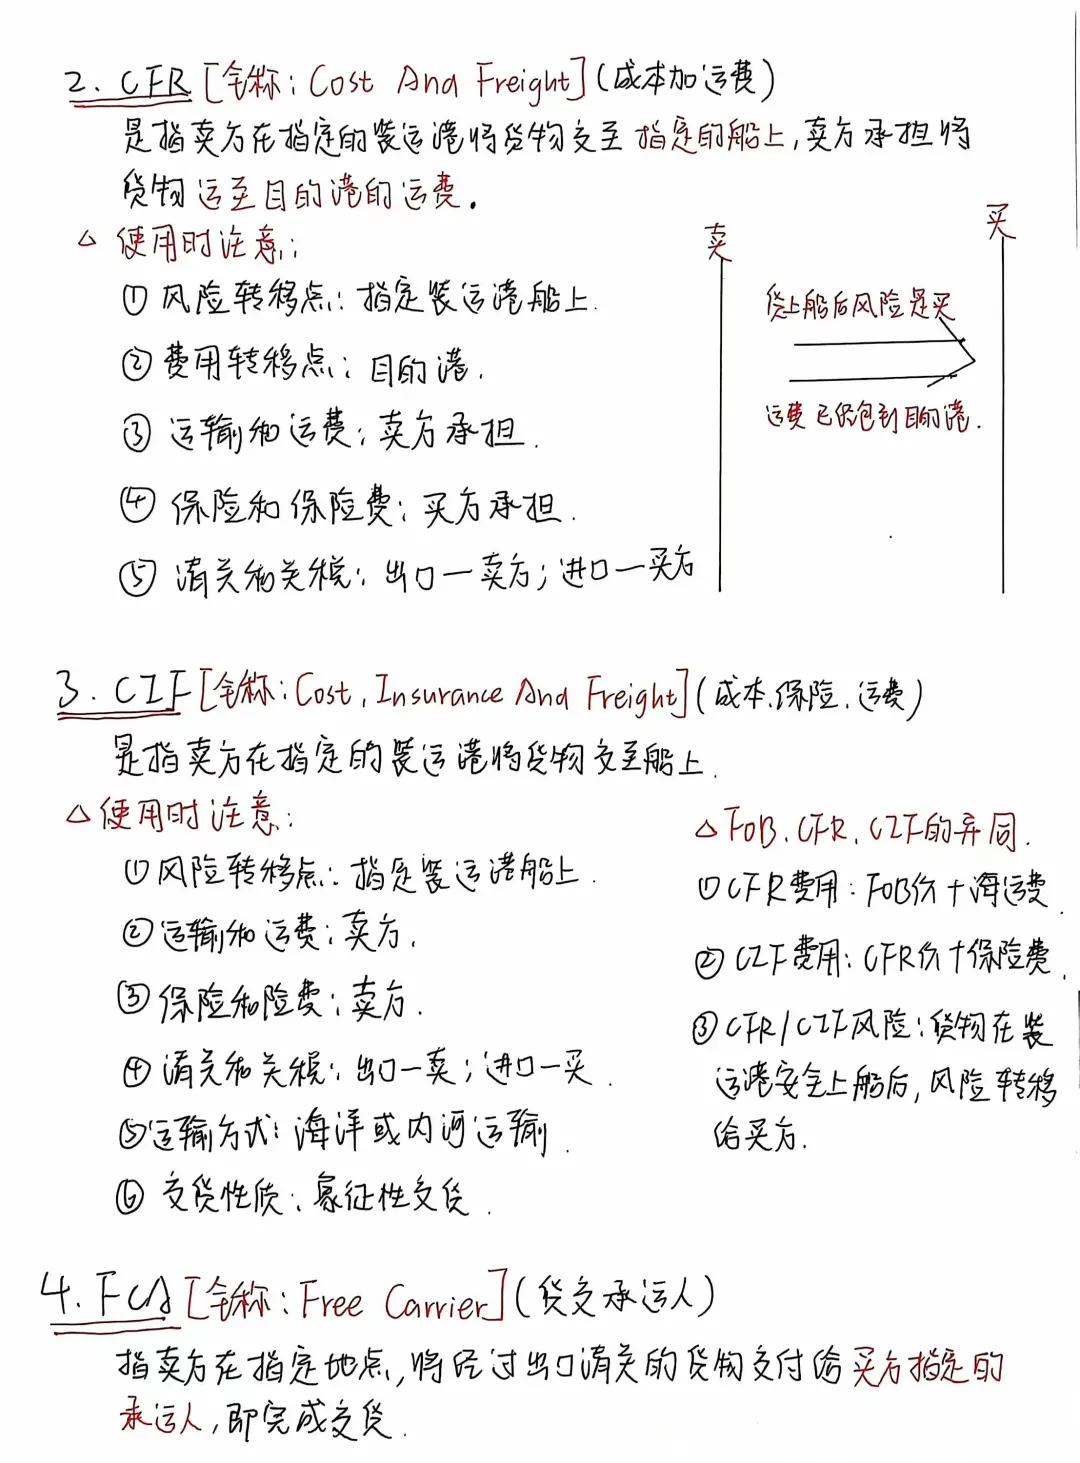 2. CFR [全称: Cost And Freight] (成本加运费)
是指卖方在指定的装运港将货物交至指定的船上,卖方承担将
货物运至目的港的运费.
△ 使用时注意:
① 风险转移点: 指定装运港船上.
② 费用转移点: 目的港.
③ 运输和运费: 卖方承担.
④ 保险和保险费: 买方承担.
⑤ 清关和关税: 出口一卖方; 进口一买方
卖
买
货上船后风险是买
运费已经包到目的港.
3. CIF [全称: Cost, Insurance And Freight] (成本.保险.运费)
是指卖方在指定的装运港将货物交至船上.
△ 使用时注意:
① 风险转移点: 指定装运港船上.
② 运输和运费: 卖方.
③ 保险和险费: 卖方.
④ 清关和关税: 出口一卖; 进口一买.
⑤ 运输方式: 海洋或内河运输.
⑥ 交货性质: 象征性交货.
△ FOB、CFR、CIF的异同.
① CFR费用: FOB价+海运费.
② CIF费用: CFR价+保险费.
③ CFR/CIF风险: 货物在装
运港安全上船后,风险转移
给买方.
4. FCA [全称: Free Carrier] (货交承运人)
指卖方在指定地点,将经过出口清关的货物交付给买方指定的
承运人,即完成交货.